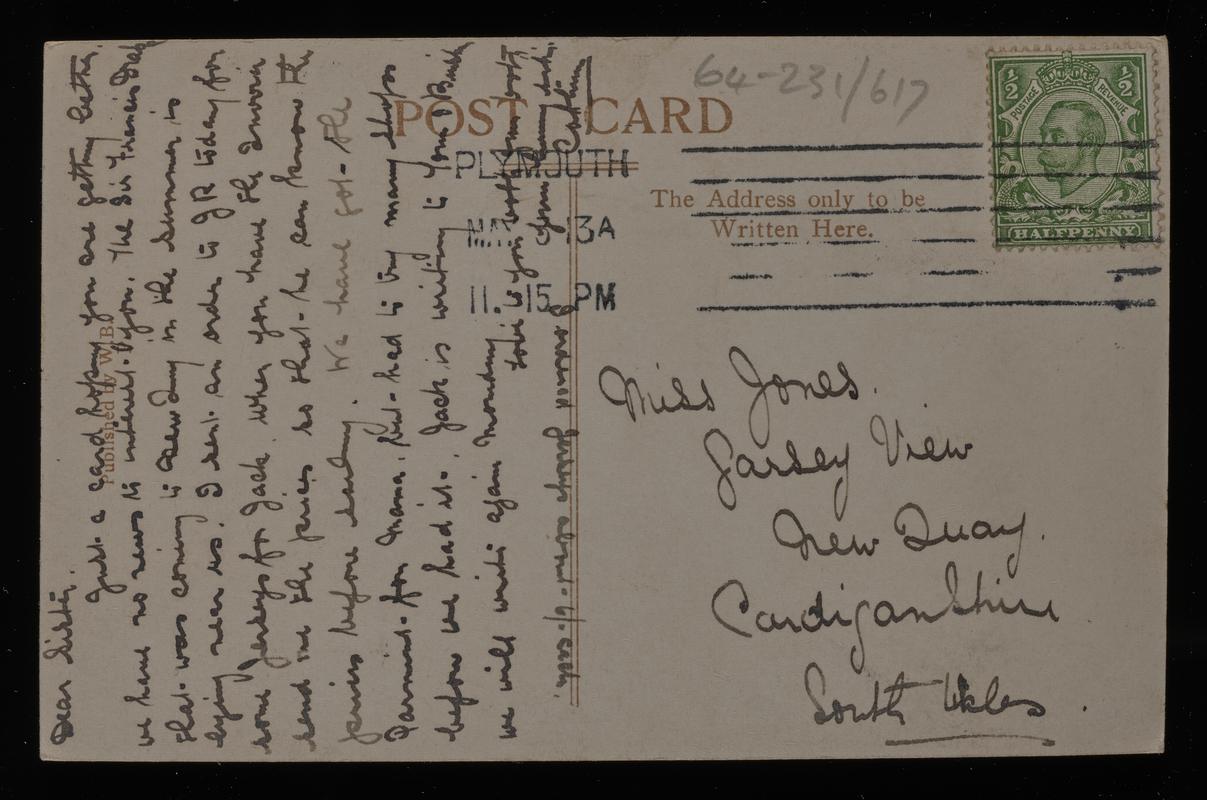 POST CARD
64-231/617
PLYMOUTH
MAY 13A
11.15 PM
The Address only to be
Written Here.
½ ½
POSTAGE REVENUE
HALFPENNY
Published by W.B.
Miss Jones.
Garsey View
New Quay.
Cardiganshire
South Wales.
Dear Sister.
Just a card hoping you are getting better.
we have no news to interest you. The Sir Francis Drake
that was coming to New Quay in the summer is
lying near us. I sent an order to JR today for
some Jerseys for Jack. When you have the answer
send me the prices so that he can know the
prices before sending. We have got the
Parmint for Mama. but had to try many shops
before we had it. Jack is writing to you.
we will write again Monday
love to you both
Your loving sister
Jerseys about 6/- each.